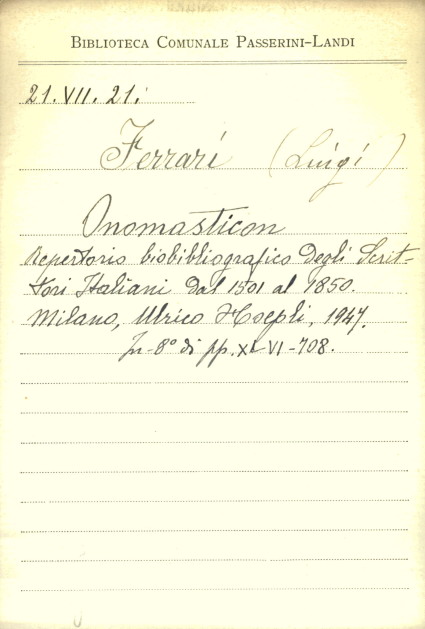 BIBLIOTECA COMUNALE PASSERINI-LANDI
21. VII. 21.
Ferrari (Luigi)
Onomasticon
Repertorio biobibliografico degli Scrit-
tori Italiani dal 1501 al 1850.
Milano, Ulrico Hoepli, 1947.
In-8° di pp. XLVI-708.